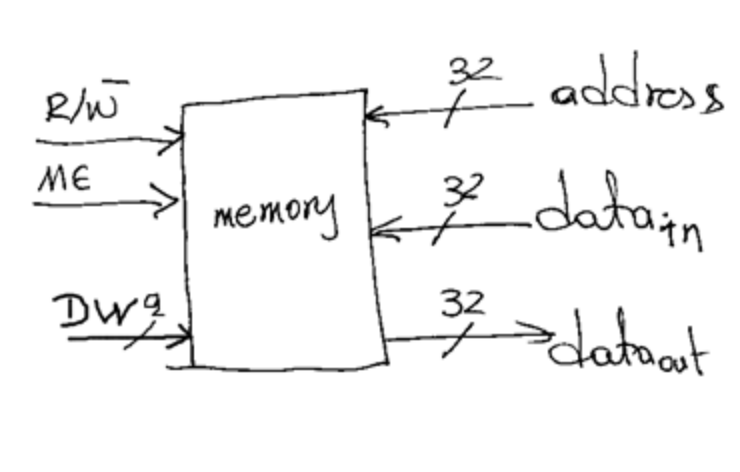 R/W̅
ME
DW
memory
32
address
32
data in
32
data out